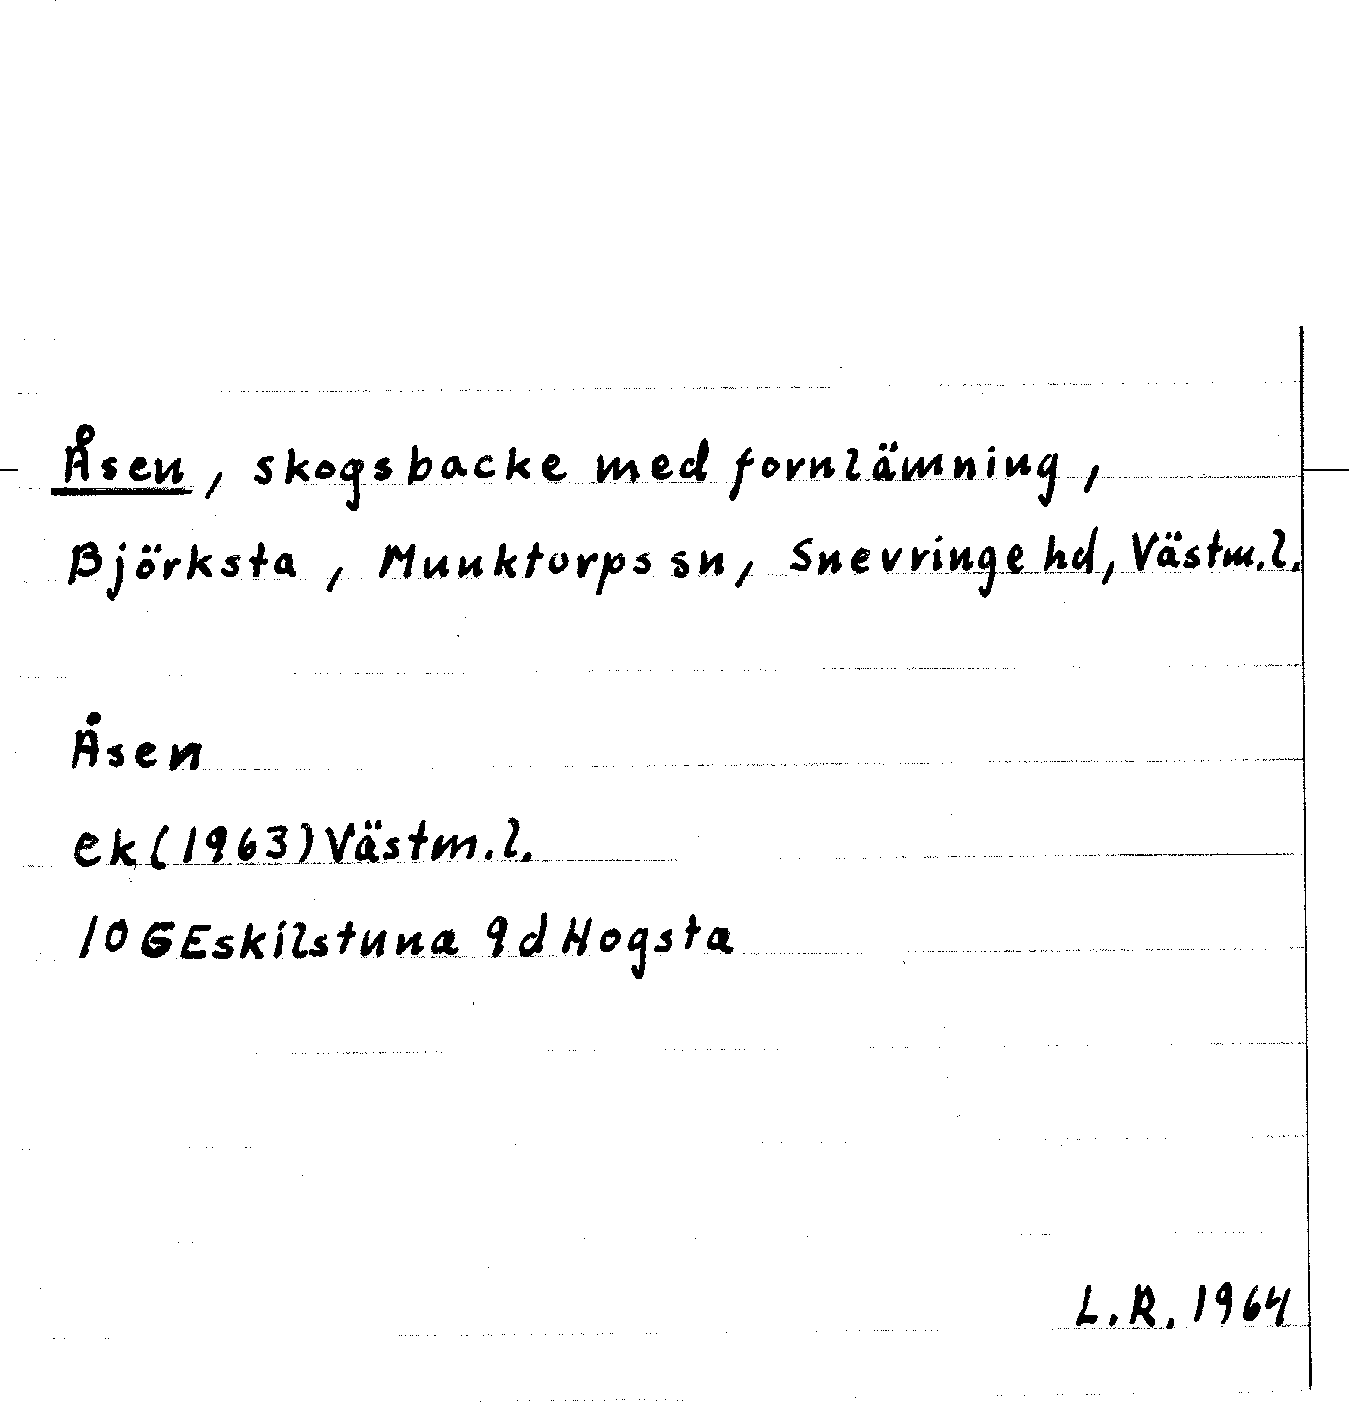 Åsen, skogsbacke med fornlämning,
Björksta, Munktorps sn, Snevringe hd, Västm.l.
Åsen
ek(1963)Västm.l.
10 G Eskilstuna 9d Hogsta
L.R. 1964